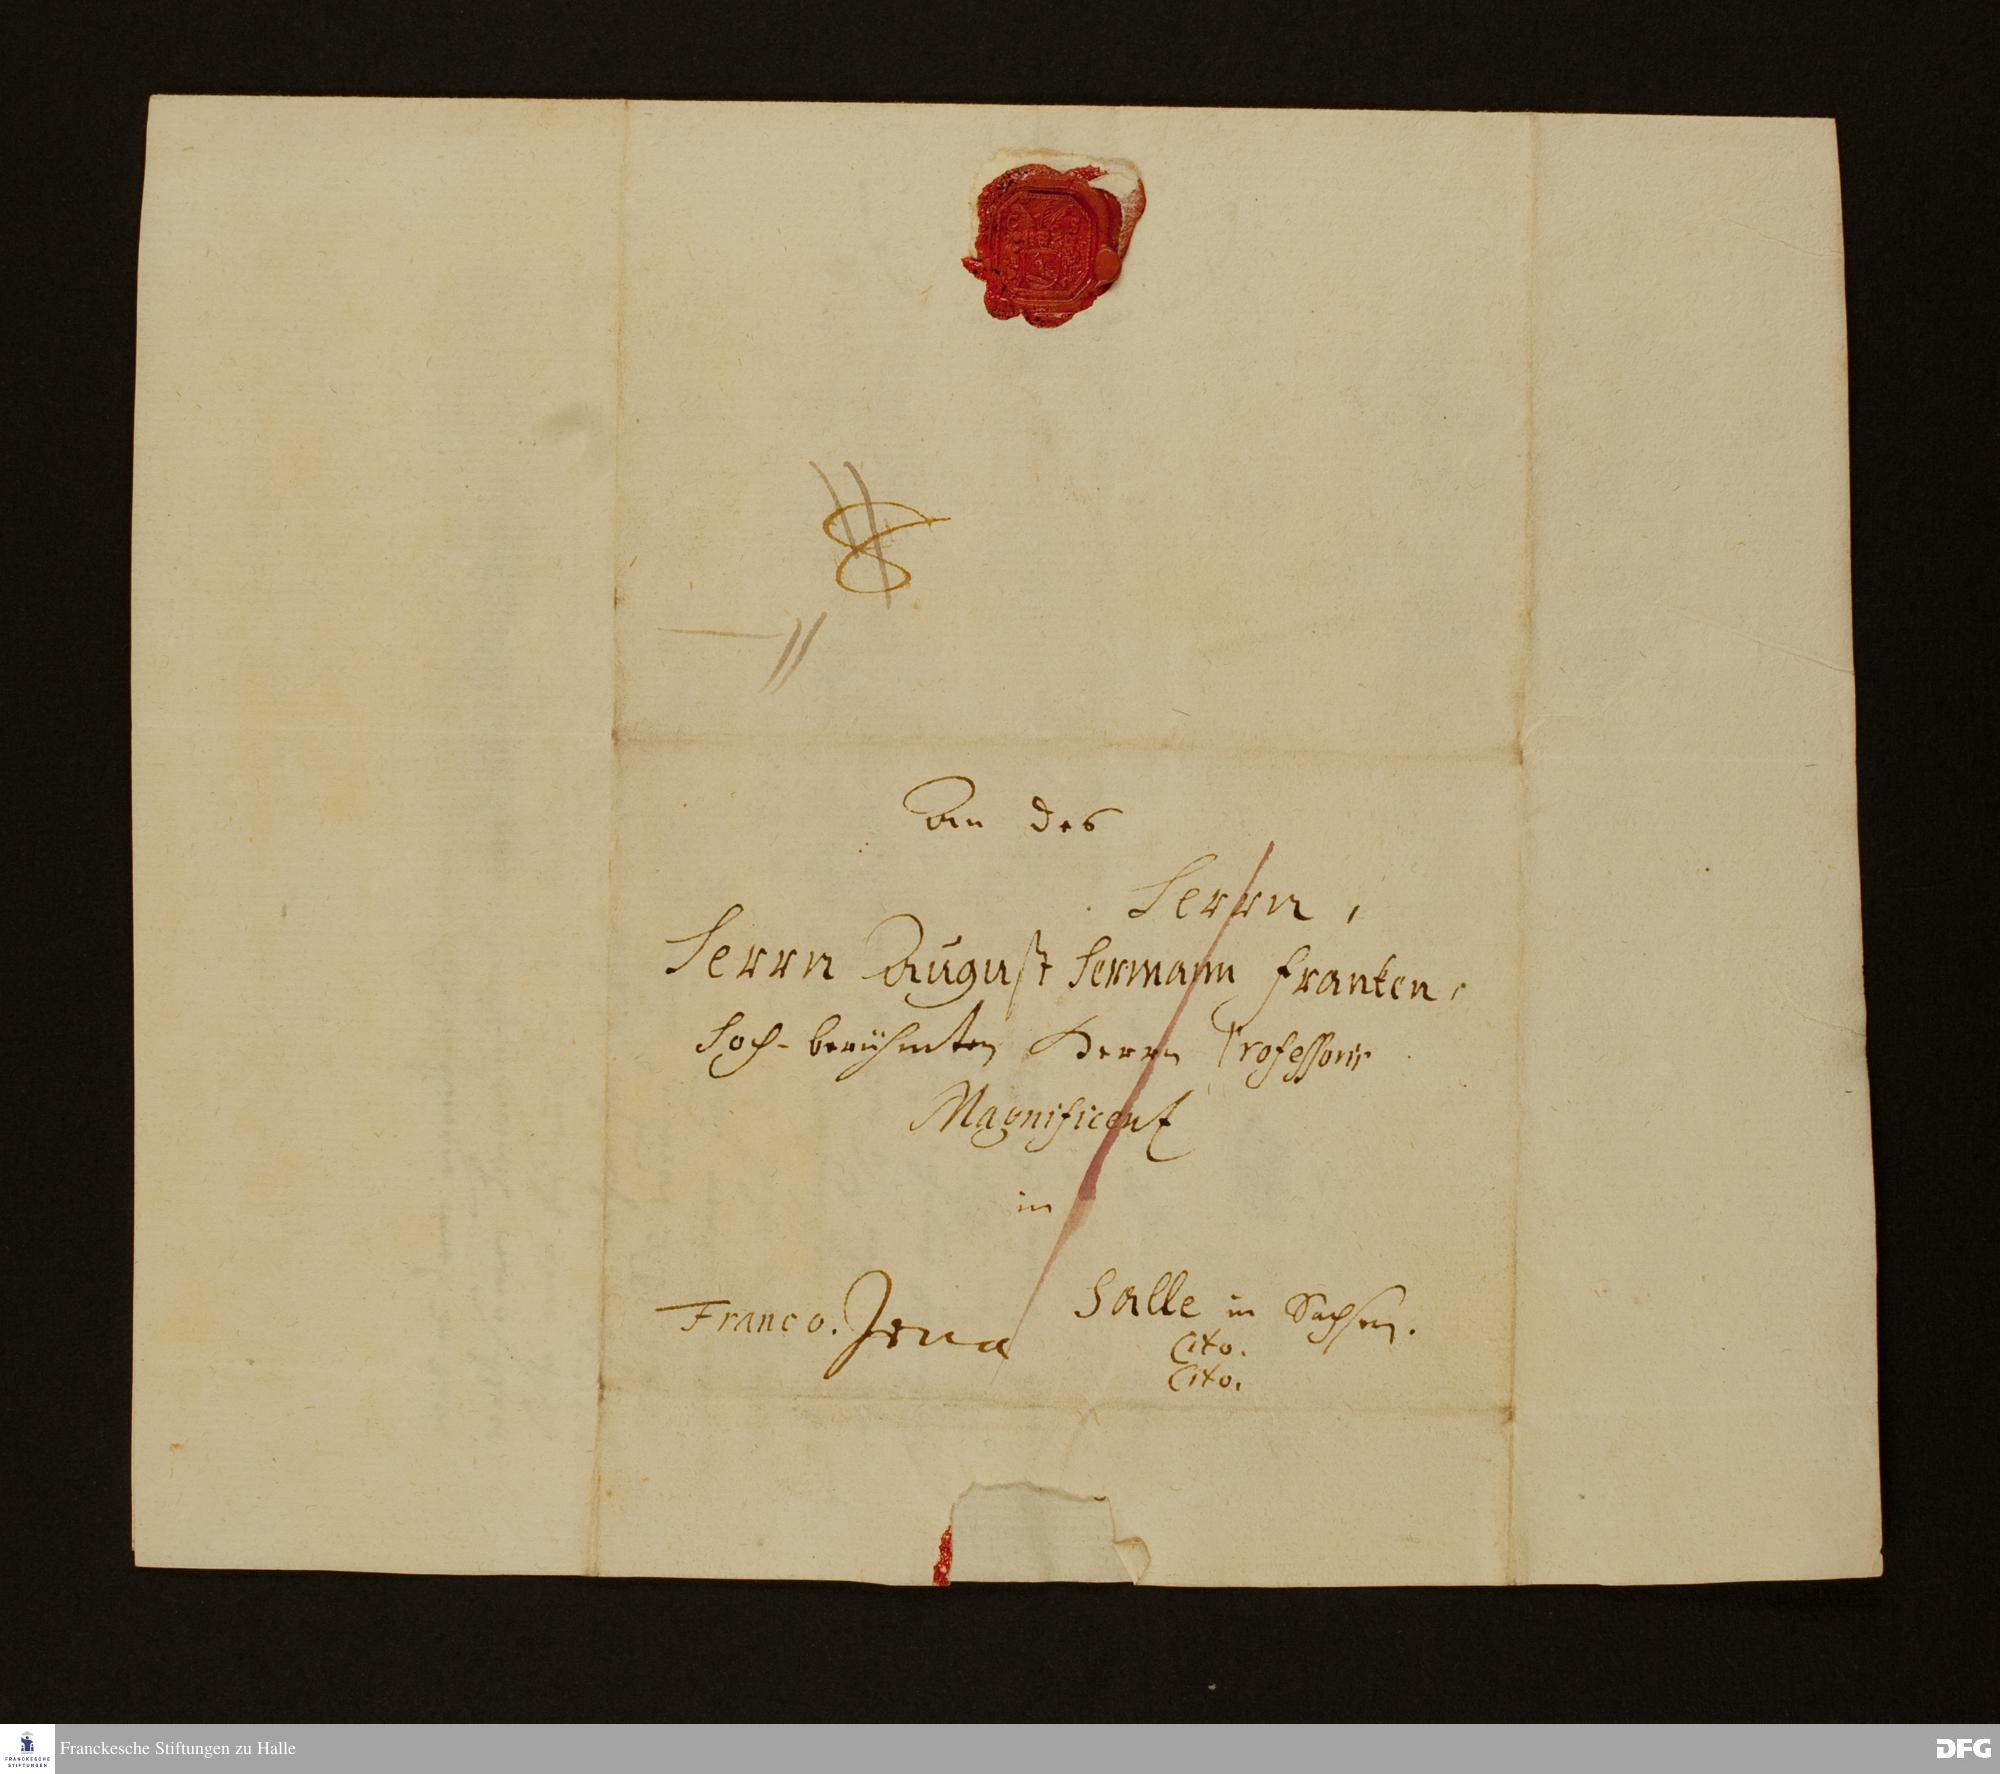 8
An des
Herrn,
Herrn August Hermann Franken,
Hoch-berühmten Herrn Professoris
Magnificentz
in
Halle in Sachsen.
Franco. Jena
Cito.
Cito.
FRANCKESCHE
STIFTUNGEN
Franckesche Stiftungen zu Halle
DFG